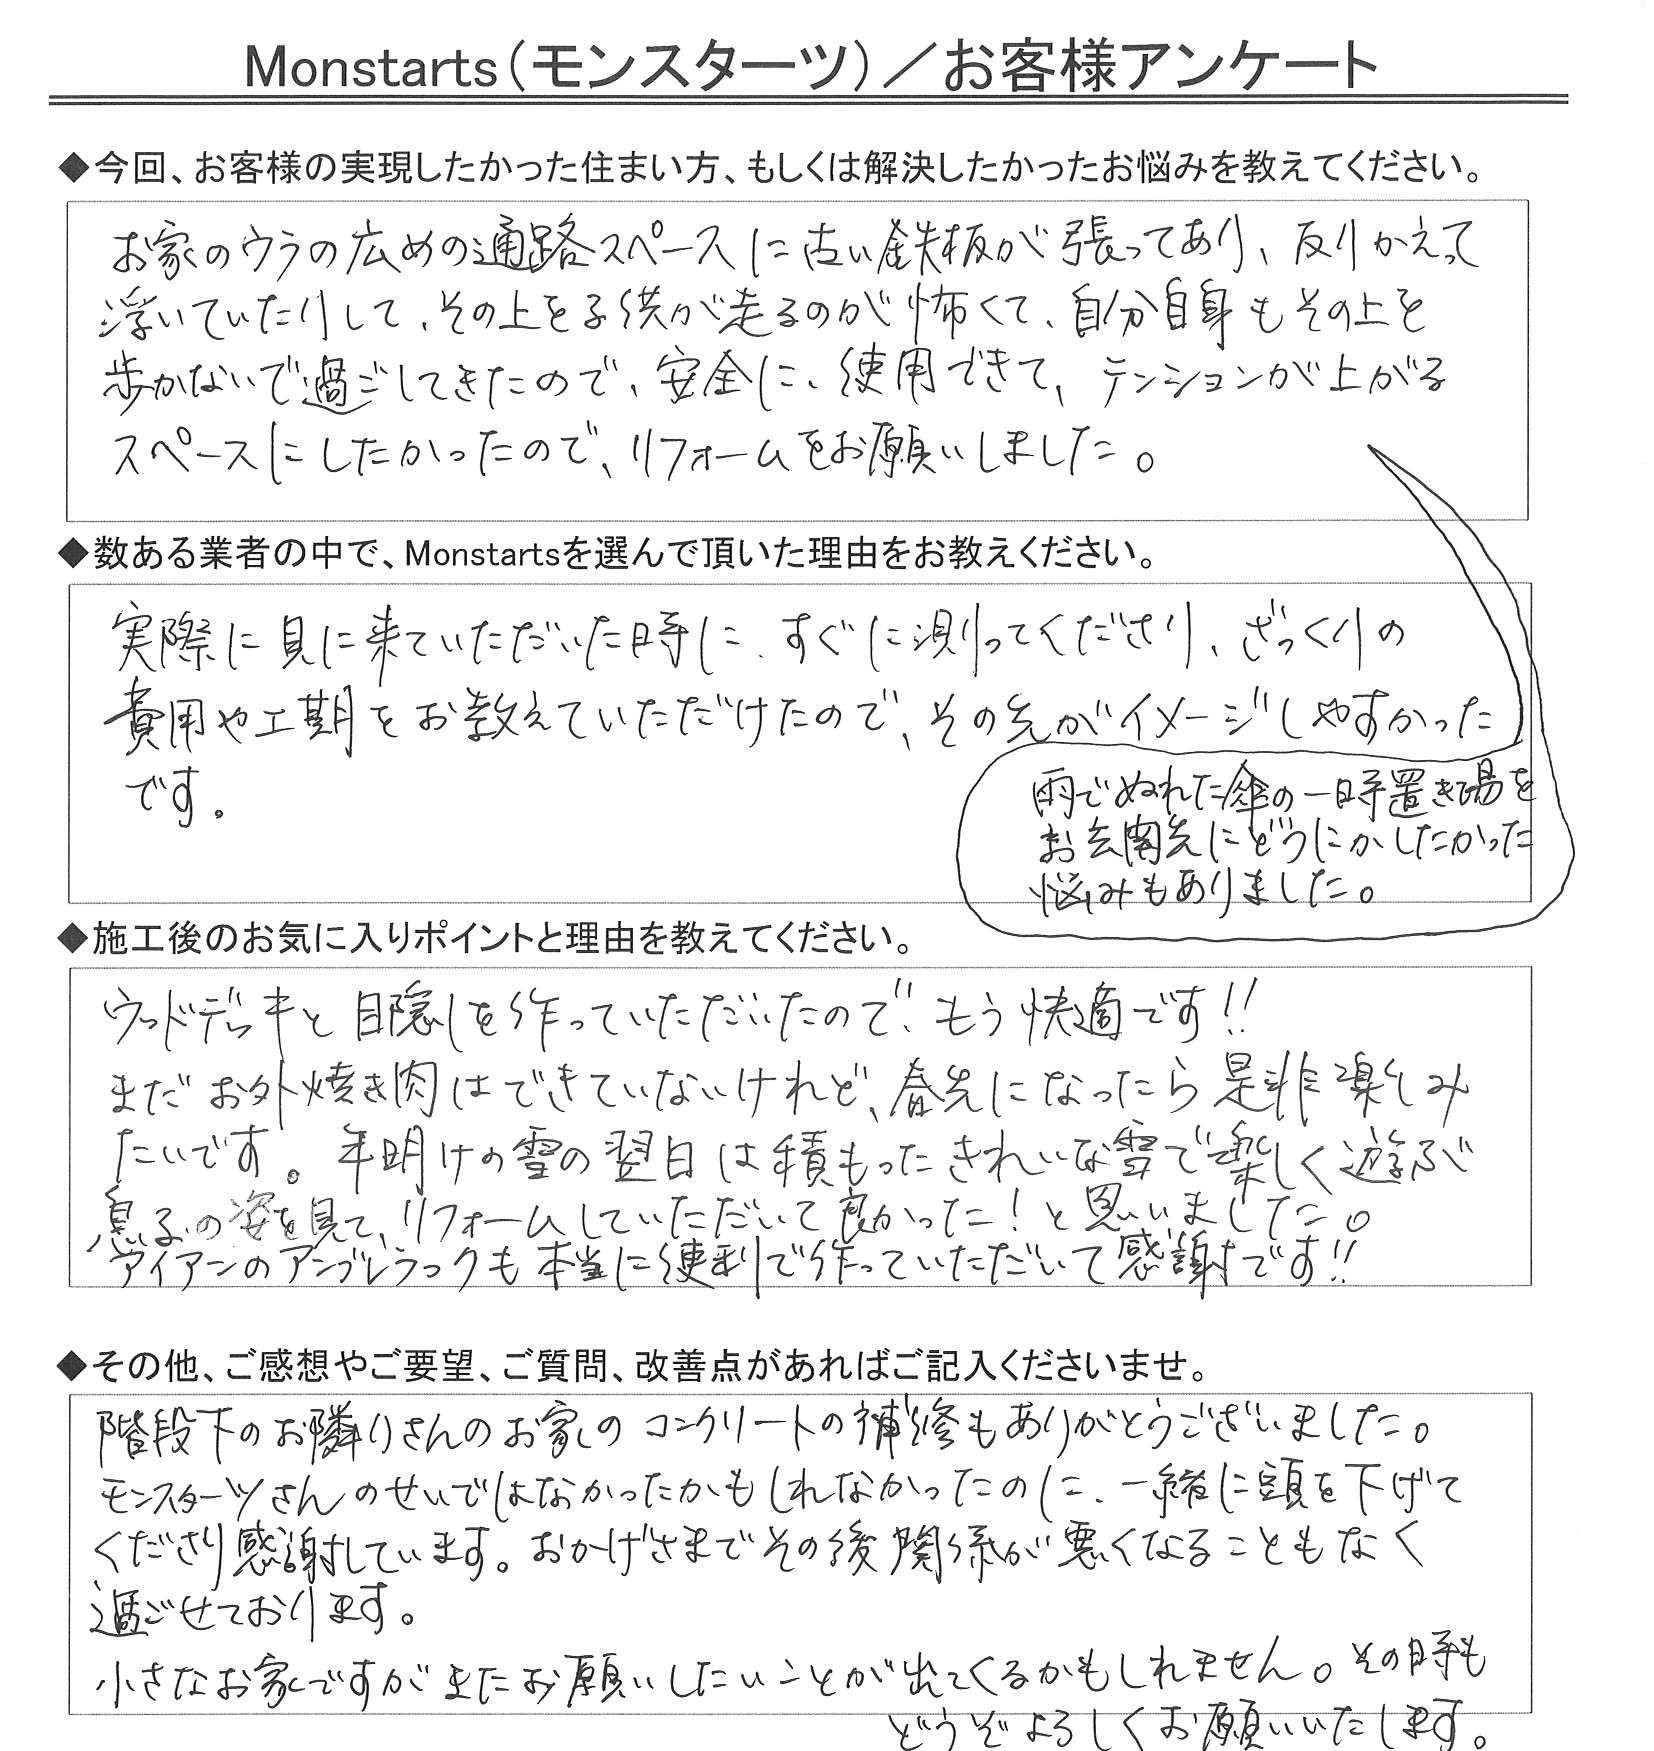 Monstarts（モンスターツ）／お客様アンケート
◆今回、お客様の実現したかった住まい方、もしくは解決したかったお悩みを教えてください。
お家のウラの広めの通路スペースに古い鉄板が張ってあり、反りかえって
浮いていたりして、その上を子供が走るのが怖くて、自分自身もその上を
歩かないで過ごしてきたので、安全に、使用できて、テンションが上がる
スペースにしたかったので、リフォームをお願いしました。
雨でぬれた傘の一時置き場を
お玄関先にどうにかしたかった
悩みもありました。
◆数ある業者の中で、Monstartsを選んで頂いた理由をお教えください。
実際に見に来ていただいた時に、すぐに測ってくださり、ざっくりの
費用や工期をお教えていただけたので、その先がイメージしやすかった
です。
◆施工後のお気に入りポイントと理由を教えてください。
ウッドデッキと目隠しを作っていただいたので、もう快適です!!
まだお外焼き肉はできていないけれど、春先になったら是非楽しみ
たいです。年明けの雪の翌日は積もったきれいな雪で楽しく遊ぶ
息子の姿を見て、リフォームしていただいて良かった！と思いました。
アイアンのアンブレラックも本当に便利で作っていただいて感謝です!!
◆その他、ご感想やご要望、ご質問、改善点があればご記入くださいませ。
階段下のお隣りさんのお家のコンクリートの補修もありがとうございました。
モンスターツさんのせいではなかったかもしれなかったのに、一緒に頭を下げて
くださり感謝しています。おかげさまでその後関係が悪くなることもなく
過ごせております。
小さなお家ですがまたお願いしたいことが出てくるかもしれません。その時も
どうぞよろしくお願いいたします。